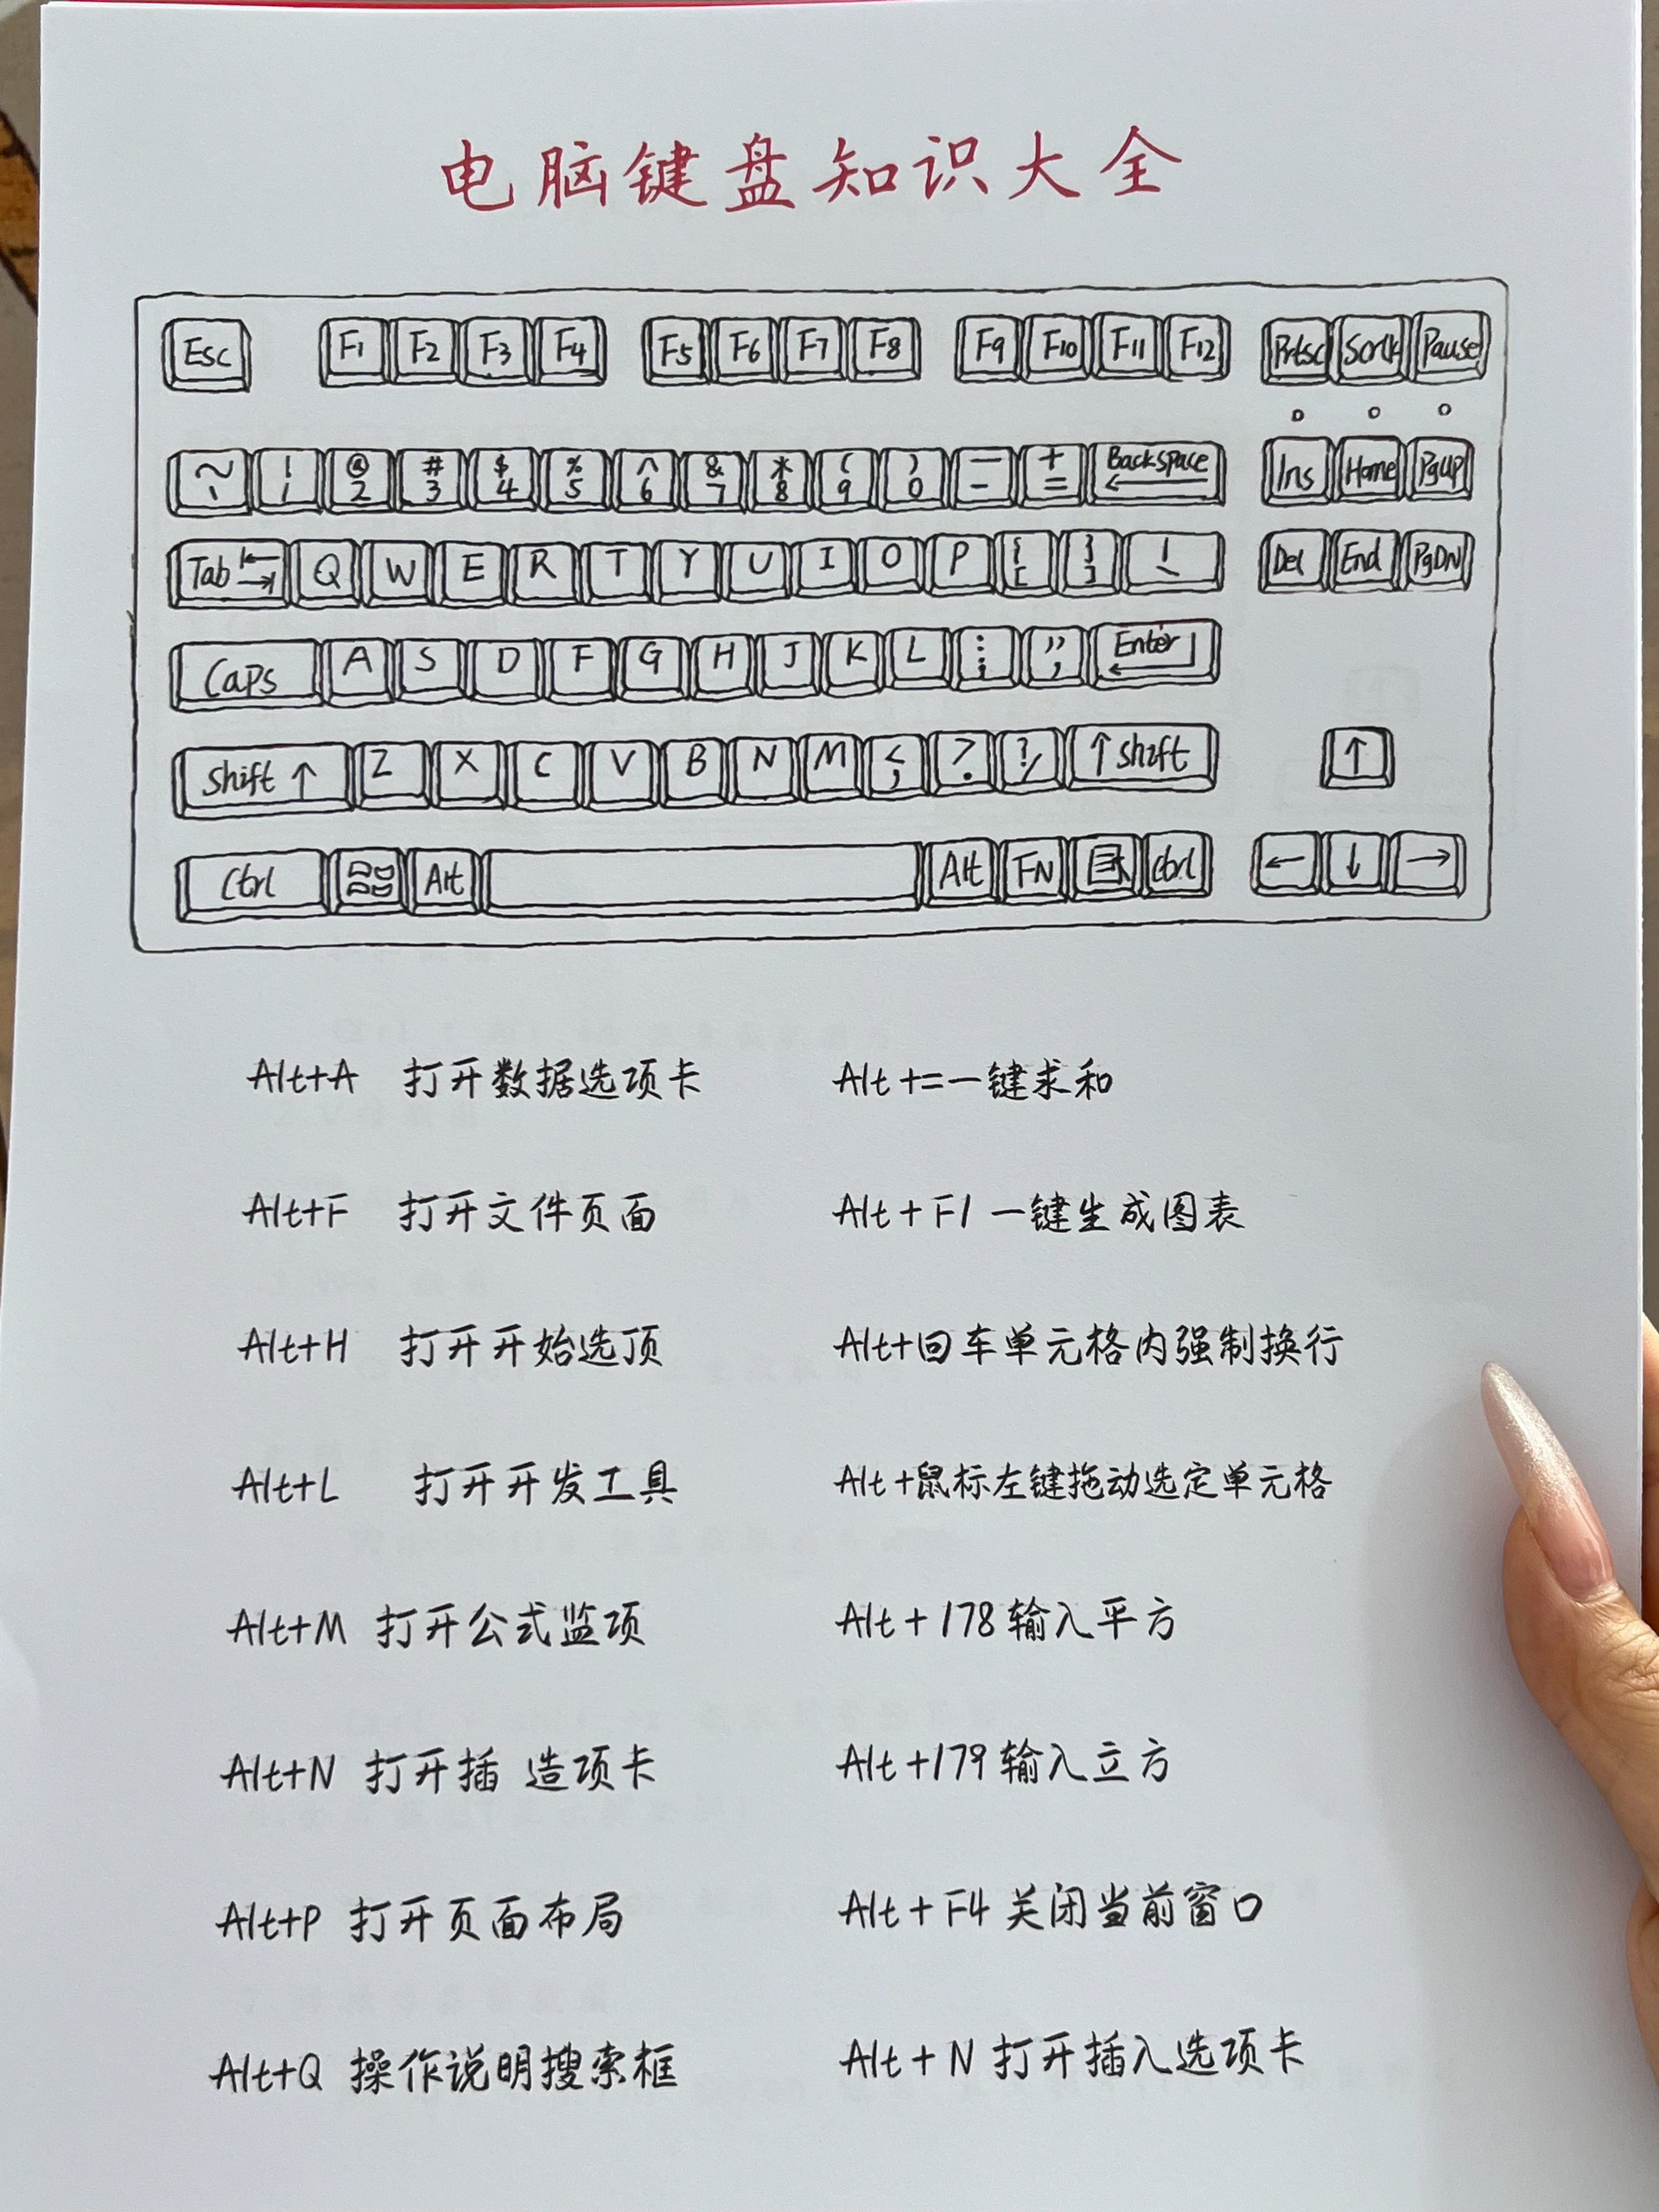 电脑键盘知识大全
Esc F1 F2 F3 F4 F5 F6 F7 F8 F9 F10 F11 F12 Prtsc Pause
~ ! @ # $ % ^ & * ( ) — + Backspace
` 1 2 3 4 5 6 7 8 9 0 - = ←
Ins Home PgUP
Tab Q W E R T Y U I O P { } |
[ ] \
Del End PgDN
Caps A S D F G H J K L : " Enter
; '
Shift ↑ Z X C V B N M < > ? ↑ Shift ↑
, . /
Ctrl Alt Alt FN Ctrl ← ↓ →
Alt+A 打开数据选项卡 Alt+=一键求和
Alt+F 打开文件页面 Alt+F1 一键生成图表
Alt+H 打开开始选顶 Alt+回车单元格内强制换行
Alt+L 打开开发工具 Alt+鼠标左键拖动选定单元格
Alt+M 打开公式监项 Alt+178输入平方
Alt+N 打开插 造项卡 Alt+179输入立方
Alt+P 打开页面布局 Alt+F4关闭当前窗口
Alt+Q 操作说明搜索框 Alt+N打开插入选项卡